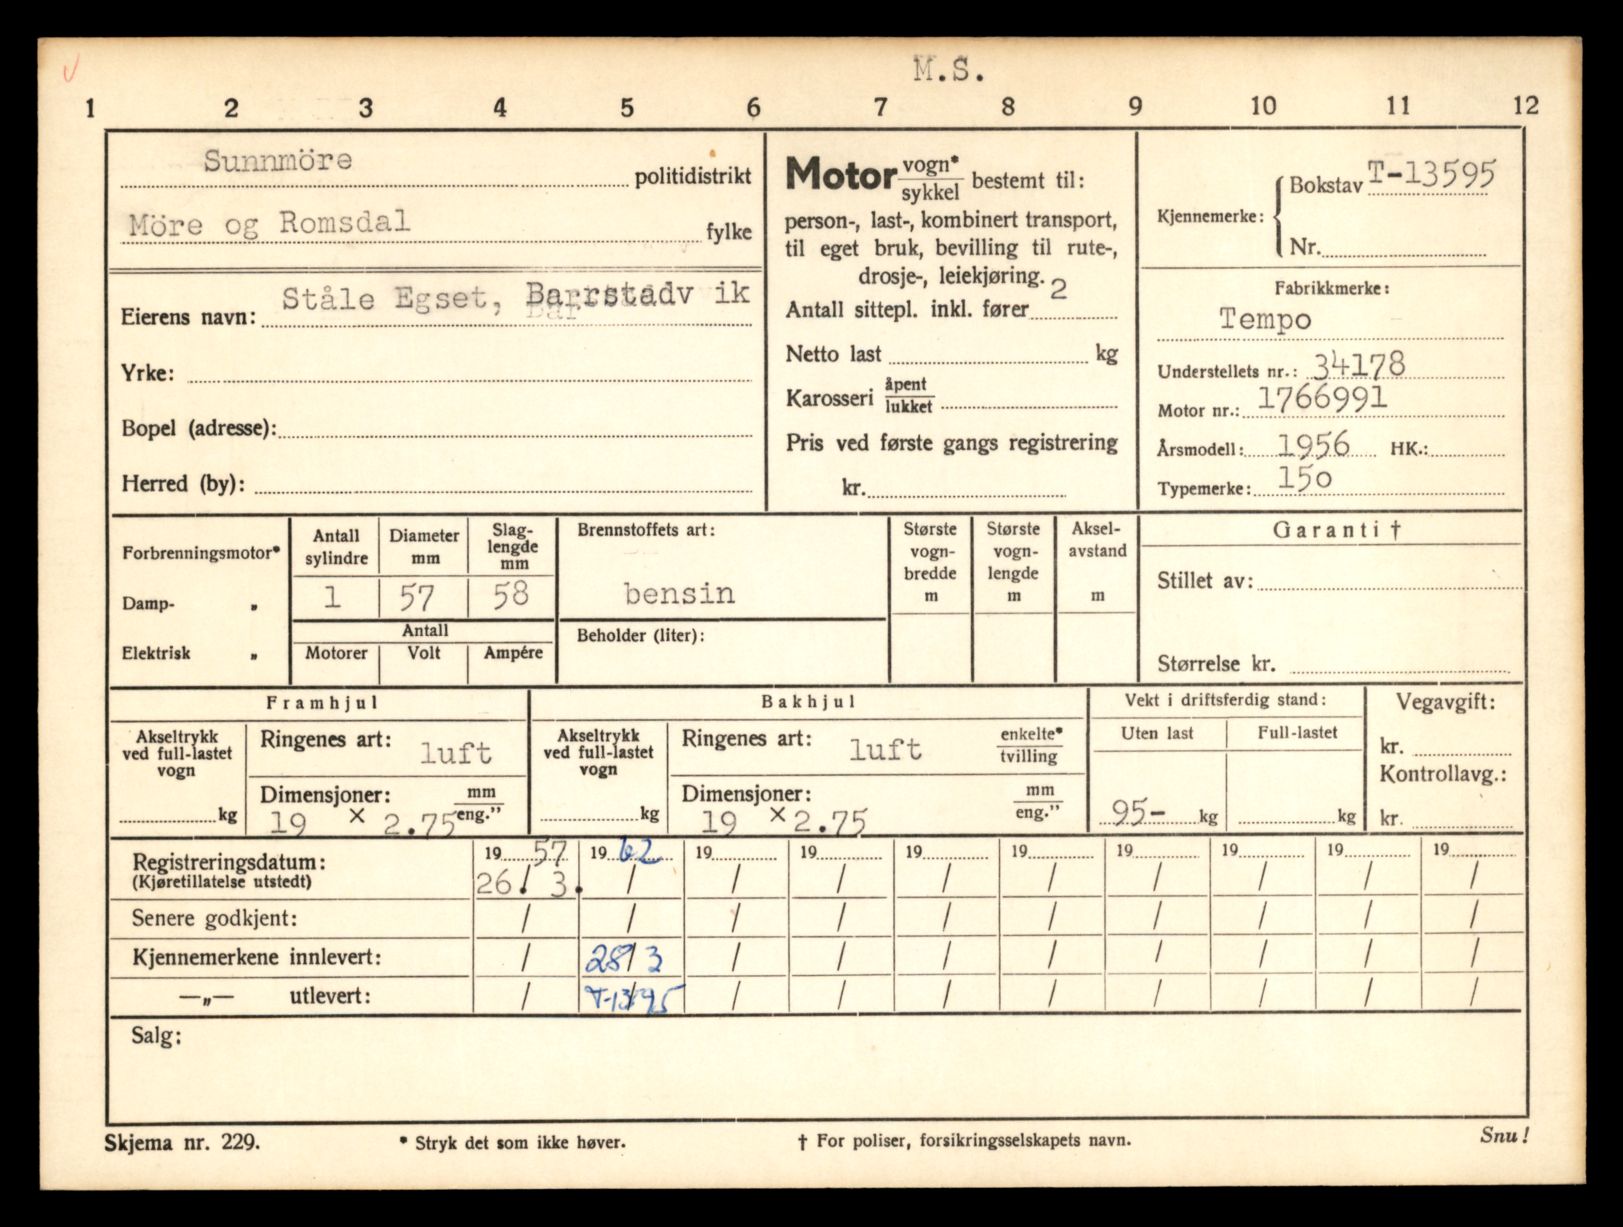 M.S.
1 2 3 4 5 6 7 8 9 10 11 12
Sunnmöre politidistrikt
Möre og Romsdal fylke
Eierens navn: Ståle Egset, Barrstadv ik
Yrke:
Bopel (adresse):
Herred (by):
Motor vogn* sykkel bestemt til:
person-, last-, kombinert transport,
til eget bruk, bevilling til rute-,
drosje-, leiekjøring.
Antall sittepl. inkl. fører 2
Netto last kg
Karosseri åpent lukket
Pris ved første gangs registrering
kr.
Kjennemerke: Bokstav T-13595
Nr.
Fabrikkmerke:
Tempo
Understellets nr.: 34178
Motor nr.: 1766991
Årsmodell: 1956 HK.:
Typemerke: 15o
Forbrenningsmotor*
Damp- „
Elektrisk „
Antall sylindre
Diameter mm
Slag-
lengde
mm
1 57 58
Antall
Motorer Volt Ampére
Brennstoffets art:
bensin
Beholder (liter):
Største
vogn-
bredde
m
Største
vogn-
lengde
m
Aksel-
avstand
m
Garanti †
Stillet av:
Størrelse kr.
Framhjul
Akseltrykk
ved full-lastet
vogn
kg
Ringenes art: luft
Dimensjoner: mm eng.”
19 × 2.75
Bakhjul
Akseltrykk
ved full-lastet
vogn
kg
Ringenes art: luft enkelte* tvilling
Dimensjoner: mm eng.”
19 × 2.75
Vekt i driftsferdig stand:
Uten last Full-lastet
95- kg kg
Vegavgift:
kr.
Kontrollavg.:
kr.
Registreringsdatum: 19 57 19 62 19 19 19 19 19 19 19 19
(Kjøretillatelse utstedt) 26. / 3. / / / / / / / / /
Senere godkjent: / / / / / / / / / /
Kjennemerkene innlevert: / 28/3 / / / / / / / /
—„— utlevert: / T-13595 / / / / / / / /
Salg:
Skjema nr. 229. * Stryk det som ikke høver. † For poliser, forsikringsselskapets navn. Snu!